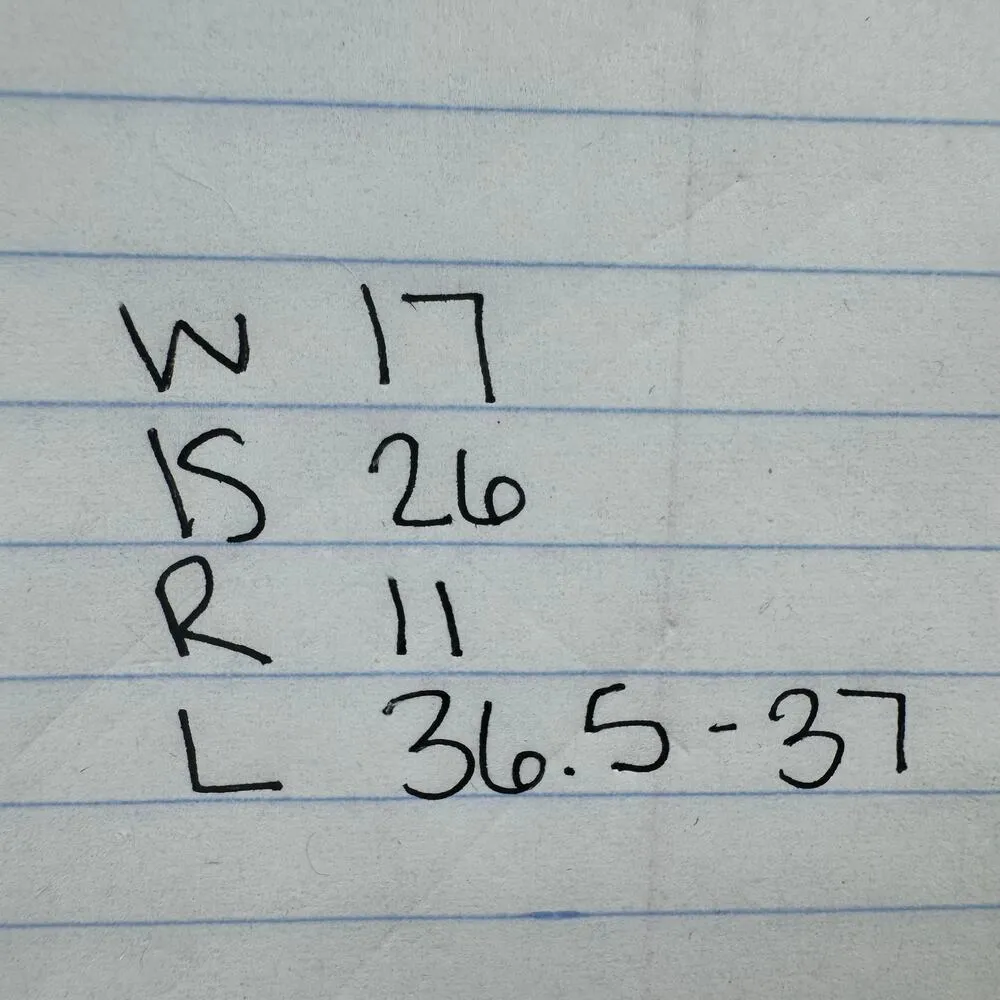 W 17
IS 26
R 11
L 36.5-37